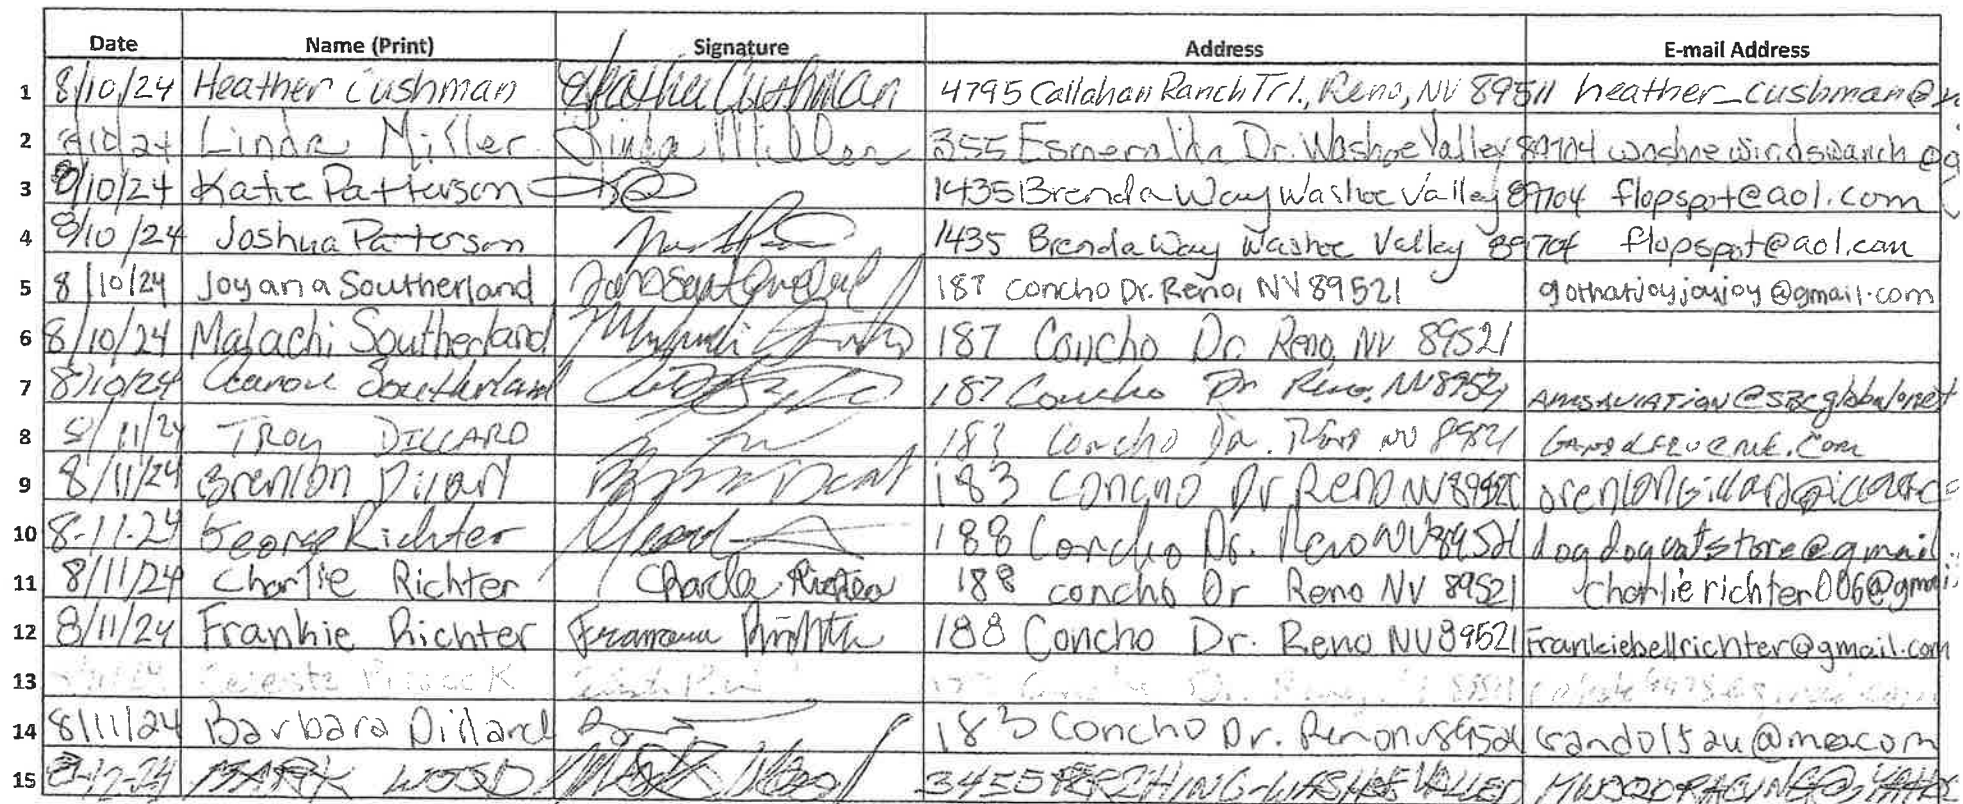 Date Name (Print) Signature Address E-mail Address
1 8/10/24 Heather Cushman Heather Cushman 4795 Callahan Ranch Trl., Reno, NV 89511 heather_cushman@
2 8/10/24 Linda Miller Linda Miller 355 Esmeralda Dr. Washoe Valley 89704
3 8/10/24 Katie Patterson 1435 Brenda Way Washoe Valley 89704 flopspot@aol.com
4 8/10/24 Joshua Patterson 1435 Brenda Way Washoe Valley 89704 flopspot@aol.com
5 8/10/24 Joyana Southerland 187 Concho Dr. Reno, NV 89521 @gmail.com
6 8/10/24 Malachi Southerland 187 Concho Dr Reno, NV 89521
7 8/10/24 Southerland 187 Concho Dr Reno, NV 89521 AMSAVIATION@SBCglobal.net
8 8/11/24 TROY DILLARD 183 Concho Dr. Reno NV 89521
9 8/11/24 Brenton Dillard 183 Concho Dr Reno NV 89521
10 8-11-24 George Richter 188 Concho Dr. Reno NV 89521 dogdogcatstore@gmail
11 8/11/24 Charlie Richter 188 concho Dr Reno NV 89521 charlierichter006@gmail
12 8/11/24 Frankie Richter Richter 188 Concho Dr. Reno NV 89521 Frankiebellrichter@gmail.com
13 Celeste Concho Dr.
14 8/11/24 Barbara Dillard 183 Concho Dr. Reno nv 89521
15 8-12-24 MARK WOOD Mark Wood 3455 PERSHING - WASHOE VALLEY